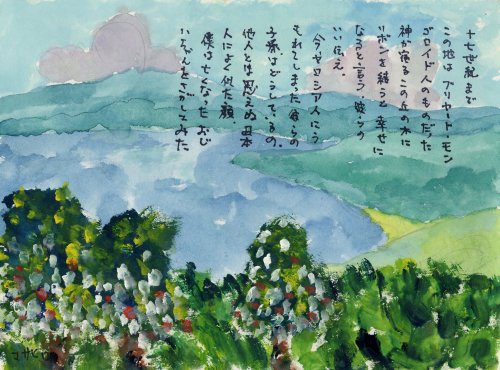 十七世紀まで
この地はブリヤート・モン
ゴロイド人のものだった
神が宿るこの丘の木に
リボンを縛ると幸せに
なると言う彼らの
いい伝え。
今ロシア人にう
もれてしまった彼らの
子孫はどうしているの。
他人とは思えぬ日本
人によく似た顔
僕は亡くなったおじ
いちゃんをさがしてみた